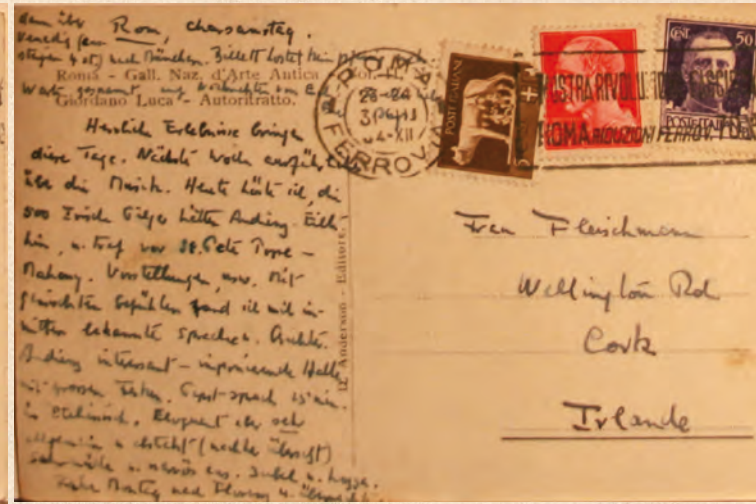 dann über Rom, Charsamstag.
Venedig
steigen nach München. Billett kostet
Roma - Gall. Naz. d'Arte Antica
Giordano Luca - Autoritratto.
Herrliche Erlebnisse bringen
diese Tage. Nächste Woche ausführlich
über die Musik. Heute hörte ich, die
500 Irische Pilger hätten Audienz. Eilte
hin, u. traf vor St. Peter Pope -
Mahony. Vorstellungen, usw. Mit
gemischten Gefühlen fand ich mich in-
mitten bekannte Sprachen.
Audienz interessant - imponierende Halle
mit grossen Papst sprach 15 min.
in Italienisch. Eloquent aber sehr
allgemein u. abstrakt (nachher übersetzt)
Sah müde u. nervös aus. Jubel u.
Fahre Montag nach Florenz u.
D. Anderson - Editore.
ROMA
FERROVIA
XII
POSTE ITALIANE
5
MOSTRA RIVOLUZ
ROMA RIDUZIONI FERROV.
CENT 50
POSTE ITALIANE
Frau Fleischmann
Wellington Rd
Cork
Irlande